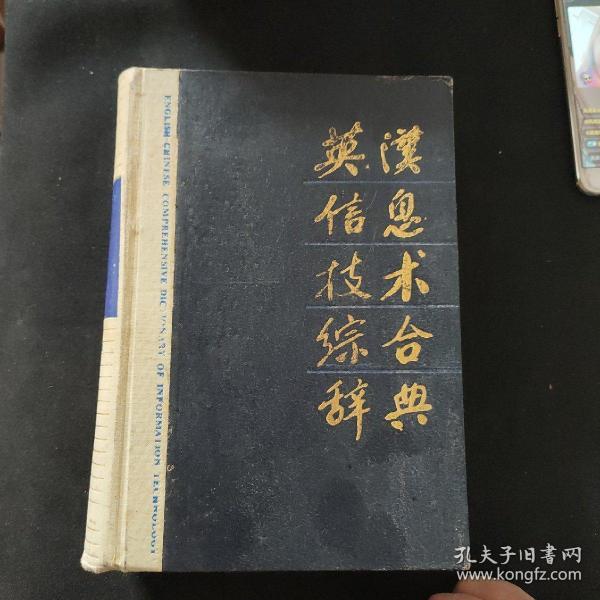 英漢
信息
技术
综合
辞典
ENGLISH CHINESE COMPREHENSIVE DICTIONARY OF INFORMATION TECHNOLOGY
孔夫子旧书网
www.kongfz.com